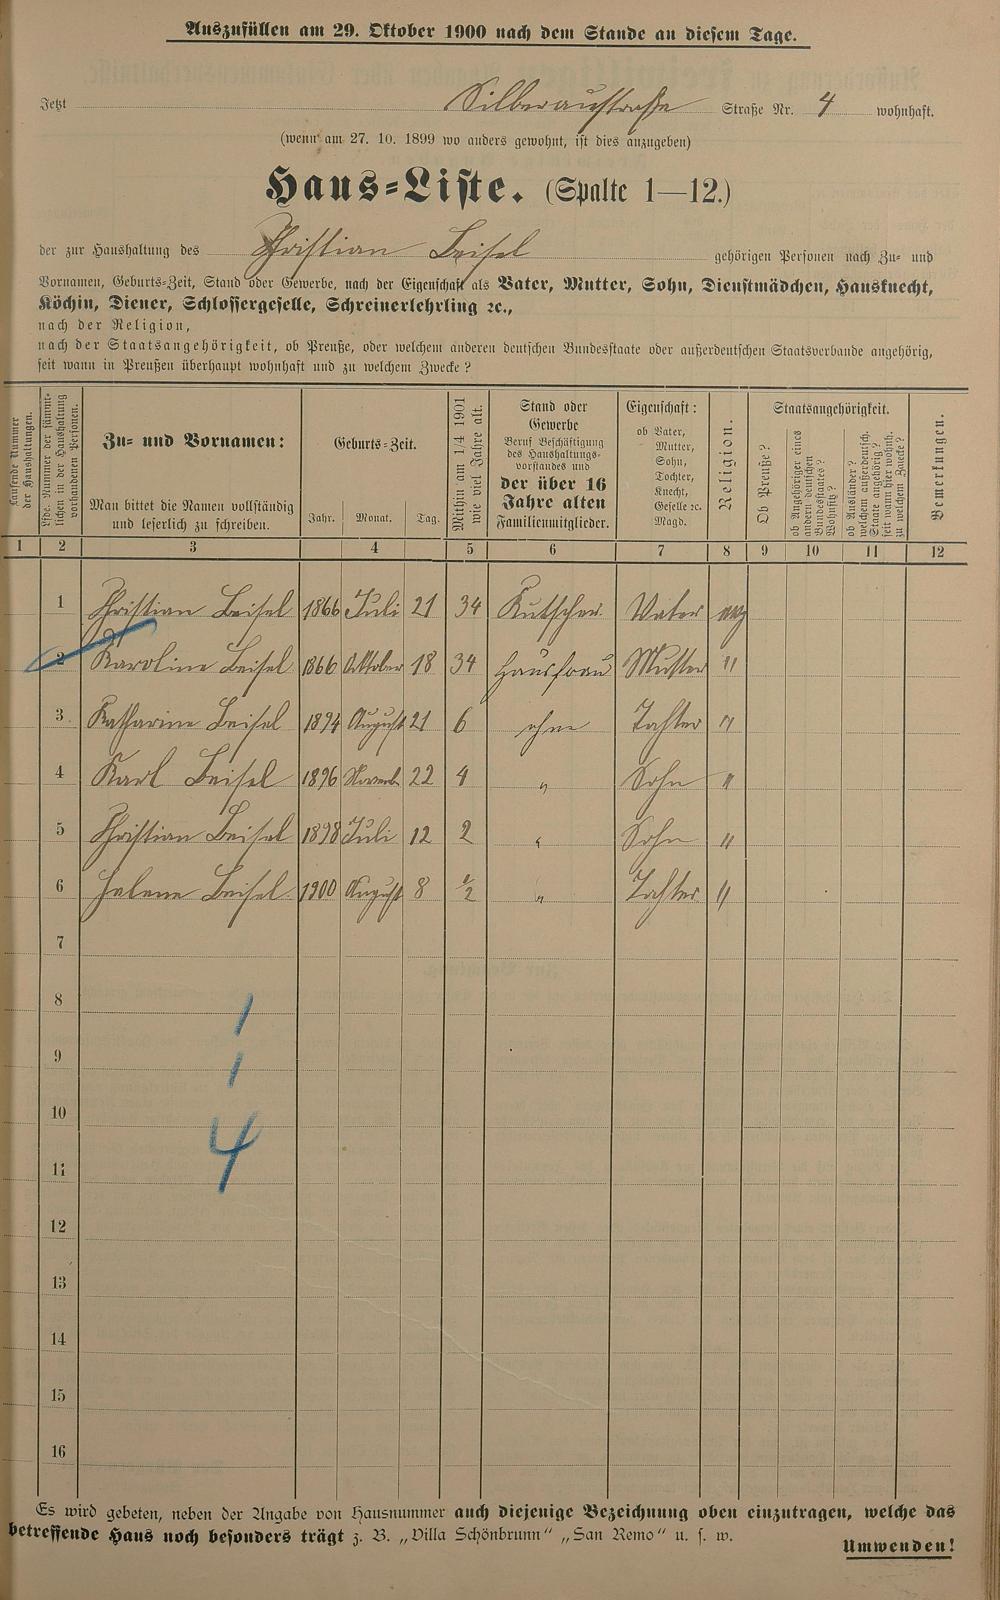 Auszufüllen am 29. Oktober 1900 nach dem Stande an diesem Tage.
Jetzt Silberaustraße Straße Nr. 4 wohnhaft.
(wenn am 27. 10. 1899 wo anders gewohnt, ist dies anzugeben)
Haus-Liste. (Spalte 1—12.)
der zur Haushaltung des Christian Beisel gehörigen Personen nach Zu- und
Vornamen, Geburts-Zeit, Stand oder Gewerbe, nach der Eigenschaft als Vater, Mutter, Sohn, Dienstmädchen, Hausknecht,
Köchin, Diener, Schlossergeselle, Schreinerlehrling ꝛc.,
nach der Religion,
nach der Staatsangehörigkeit, ob Preuße, oder welchem anderen deutschen Bundesstaate oder außerdeutschen Staatsverbande angehörig,
seit wann in Preußen überhaupt wohnhaft und zu welchem Zwecke?
Laufende Nummer der Haushaltungen.
Lfde. Nummer der sämmtlichen in der Haushaltung vorhandenen Personen.
Zu- und Vornamen:
Man bittet die Namen vollständig
und leserlich zu schreiben.
Geburts-Zeit.
Jahr. Monat. Tag.
Mithin am 1/4 1901
wie viel Jahre alt.
Stand oder
Gewerbe
Beruf Beschäftigung
des Haushaltungs-
vorstandes und
der über 16
Jahre alten
Familienmitglieder.
Eigenschaft:
ob Vater,
" Mutter,
Sohn,
Tochter,
Knecht,
Geselle ꝛc.
Magd.
Religion.
Staatsangehörigkeit.
Ob Preuße?
ob Angehöriger eines
andern deutschen
Bundesstaates?
Wohnsitz?
ob Ausländer?
welchem außerdeutsch.
Staate angehörig?
seit wann hier wohnh.
zu welchem Zwecke?
Bemerkungen.
1 2 3 4 5 6 7 8 9 10 11 12
1 Christian Beisel 1866 Juli 21 34 Kutscher Vater evg
2 Karoline Beisel 1866 Oktober 18 34 Hausfrau Mutter "
3 Katharine Beisel 1894 August 21 6 ohne Tochter "
4 Karl Beisel 1896 Novemb 22 4 " Sohn "
5 Christian Beisel 1898 Juli 12 2 " Sohn "
6 Helene Beisel 1900 August 8 1/2 " Tochter "
7
8
1
9
1
10
4
11
12
13
14
15
16
Es wird gebeten, neben der Angabe von Hausnummer auch diejenige Bezeichnung oben einzutragen, welche das
betreffende Haus noch besonders trägt z. B. „Villa Schönbrunn" „San Remo" u. s. w.
Umwenden!